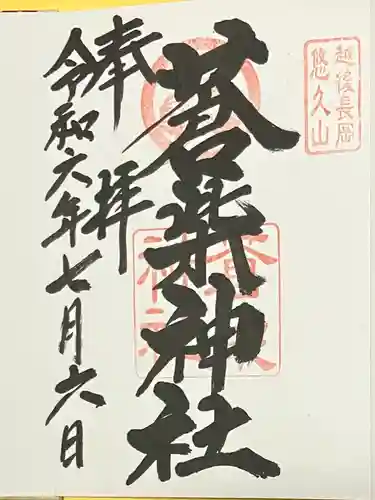 越後長岡
悠久山
奉拝
蒼柴神社
令和六年七月六日